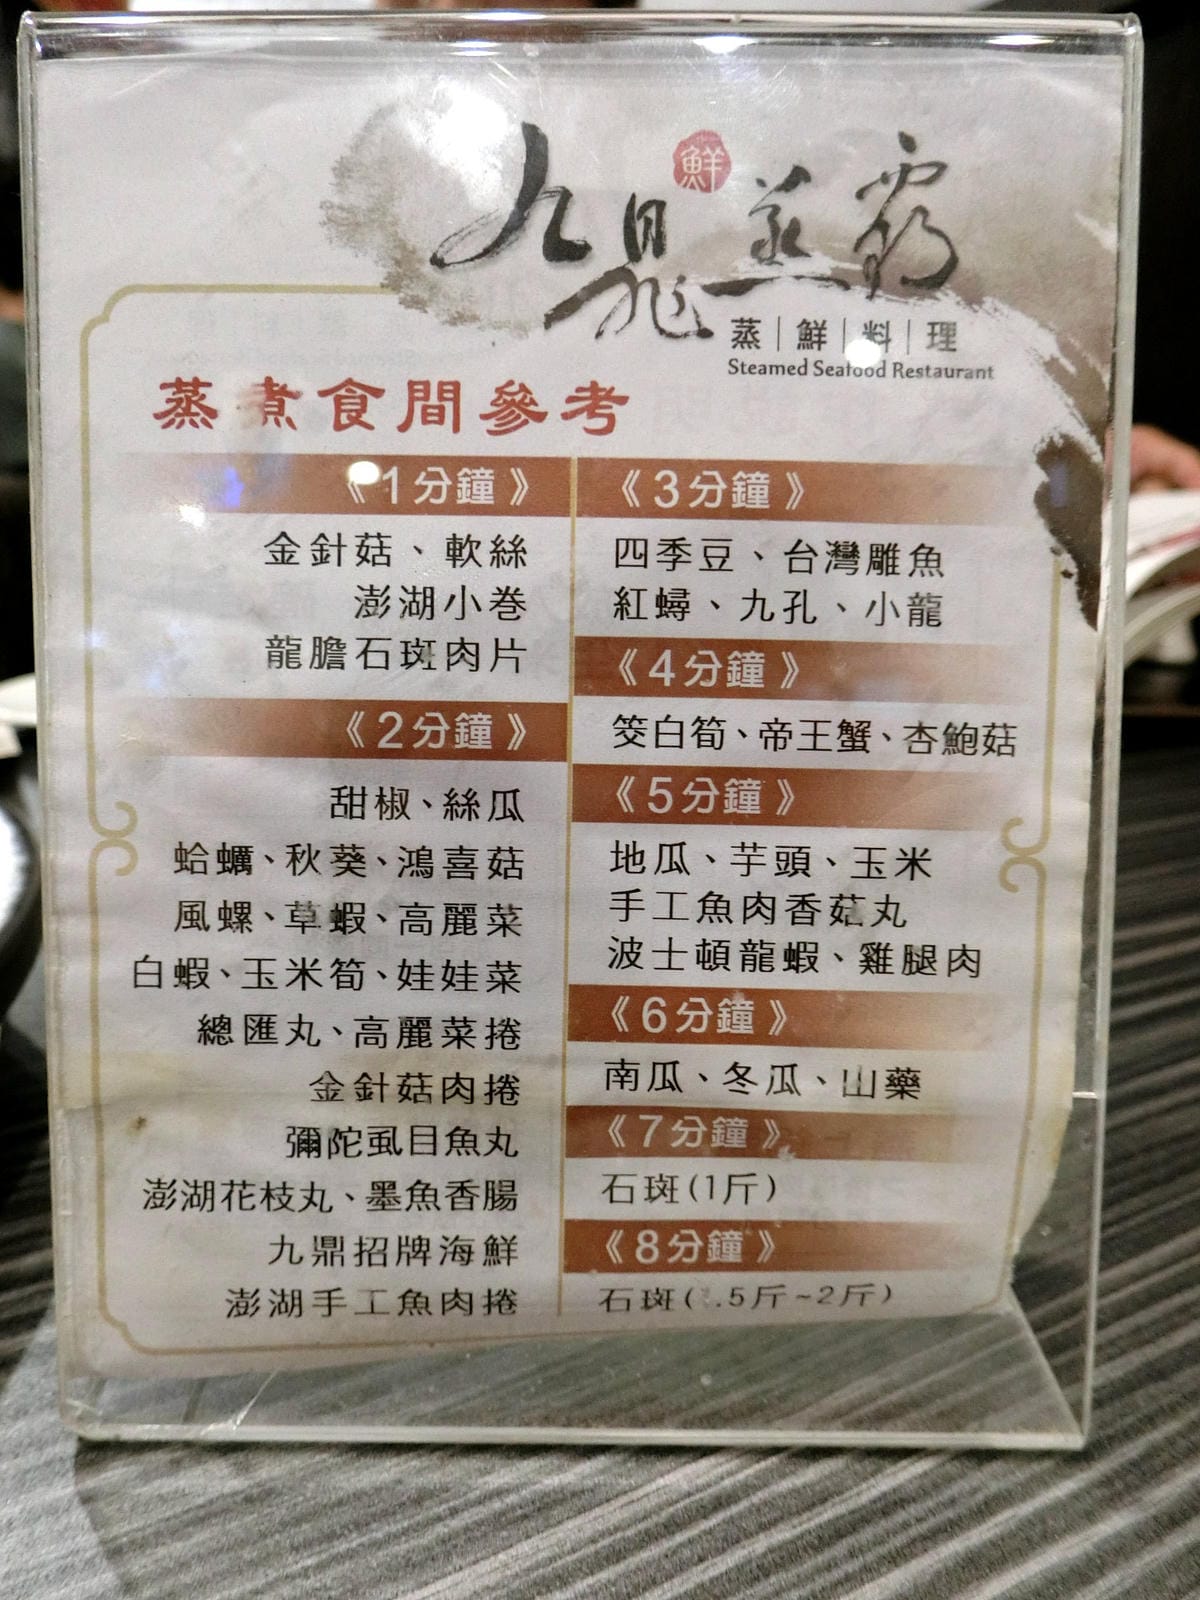 九鼎蒸霸
鮮
蒸｜鮮｜料｜理
Steamed Seafood Restaurant
蒸煮食間參考
《1分鐘》
金針菇、軟絲
澎湖小卷
龍膽石斑肉片
《2分鐘》
甜椒、絲瓜
蛤蠣、秋葵、鴻喜菇
風螺、草蝦、高麗菜
白蝦、玉米筍、娃娃菜
總匯丸、高麗菜捲
金針菇肉捲
彌陀虱目魚丸
澎湖花枝丸、墨魚香腸
九鼎招牌海鮮
澎湖手工魚肉捲
《3分鐘》
四季豆、台灣雕魚
紅蟳、九孔、小龍
《4分鐘》
筊白筍、帝王蟹、杏鮑菇
《5分鐘》
地瓜、芋頭、玉米
手工魚肉香菇丸
波士頓龍蝦、雞腿肉
《6分鐘》
南瓜、冬瓜、山藥
《7分鐘》
石斑(1斤)
《8分鐘》
石斑( .5斤~2斤)